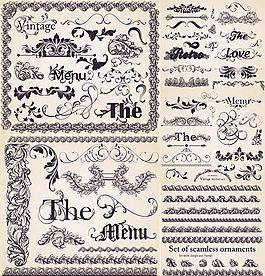 Vintage
Menu
The
The
Retro
The
Love
Menu
The
The
Menu
Set of seamless ornaments